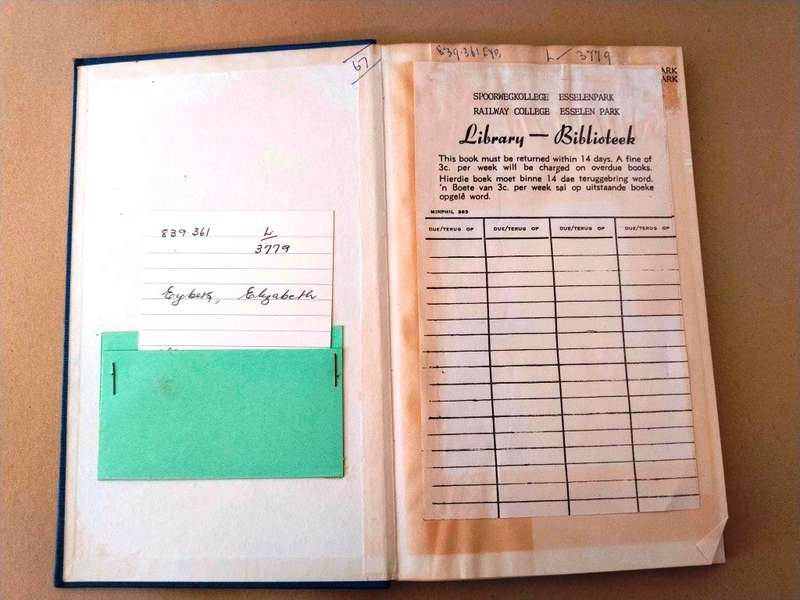 67
839.361
L/
3779
Eybers, Elizabeth
839.361 Eyb.
L/ 3779
ARK
ARK
SPOORWEGKOLLEGE ESSELENPARK
RAILWAY COLLEGE ESSELEN PARK
Library — Biblioteek
This book must be returned within 14 days. A fine of
3c. per week will be charged on overdue books.
Hierdie boek moet binne 14 dae teruggebring word.
'n Boete van 3c. per week sal op uitstaande boeke
opgelê word.
MINPHIL 363
DUE/TERUG OP DUE/TERUG OP DUE/TERUG OP DUE/TERUG OP